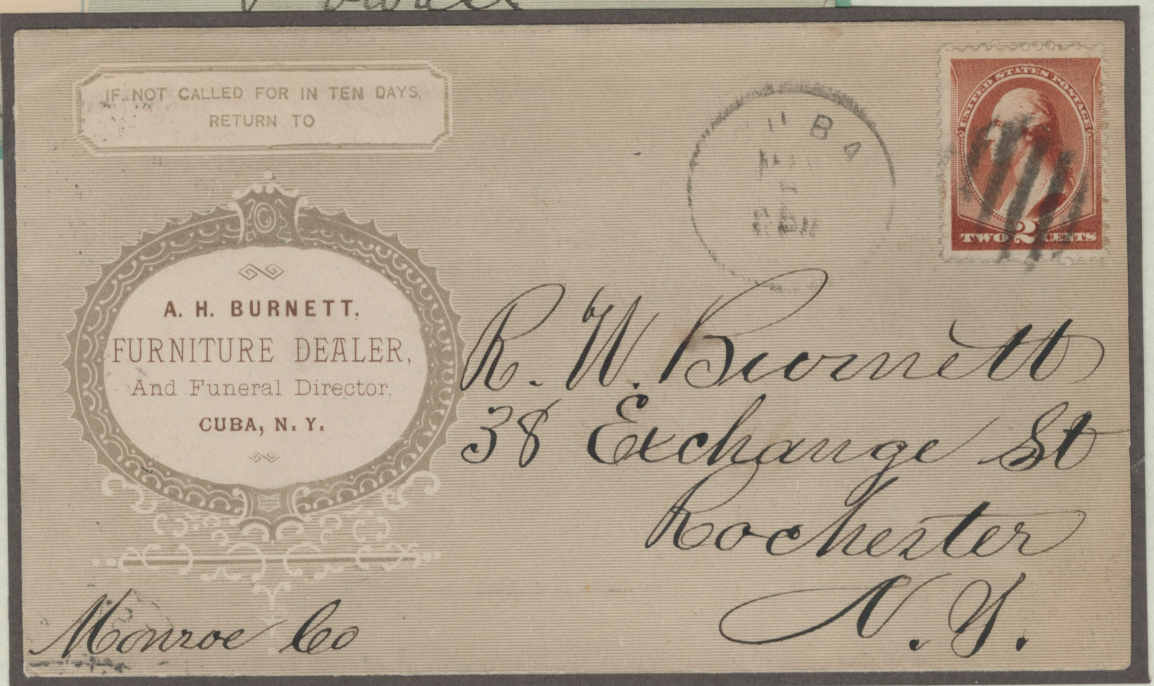 IF NOT CALLED FOR IN TEN DAYS,
RETURN TO
A. H. BURNETT,
FURNITURE DEALER,
And Funeral Director.
CUBA, N. Y.
UBA
UNITED STATES POSTAGE
TWO 2 CENTS
R. W. Burnett
38 Exchange St
Rochester
N. Y.
Monroe Co